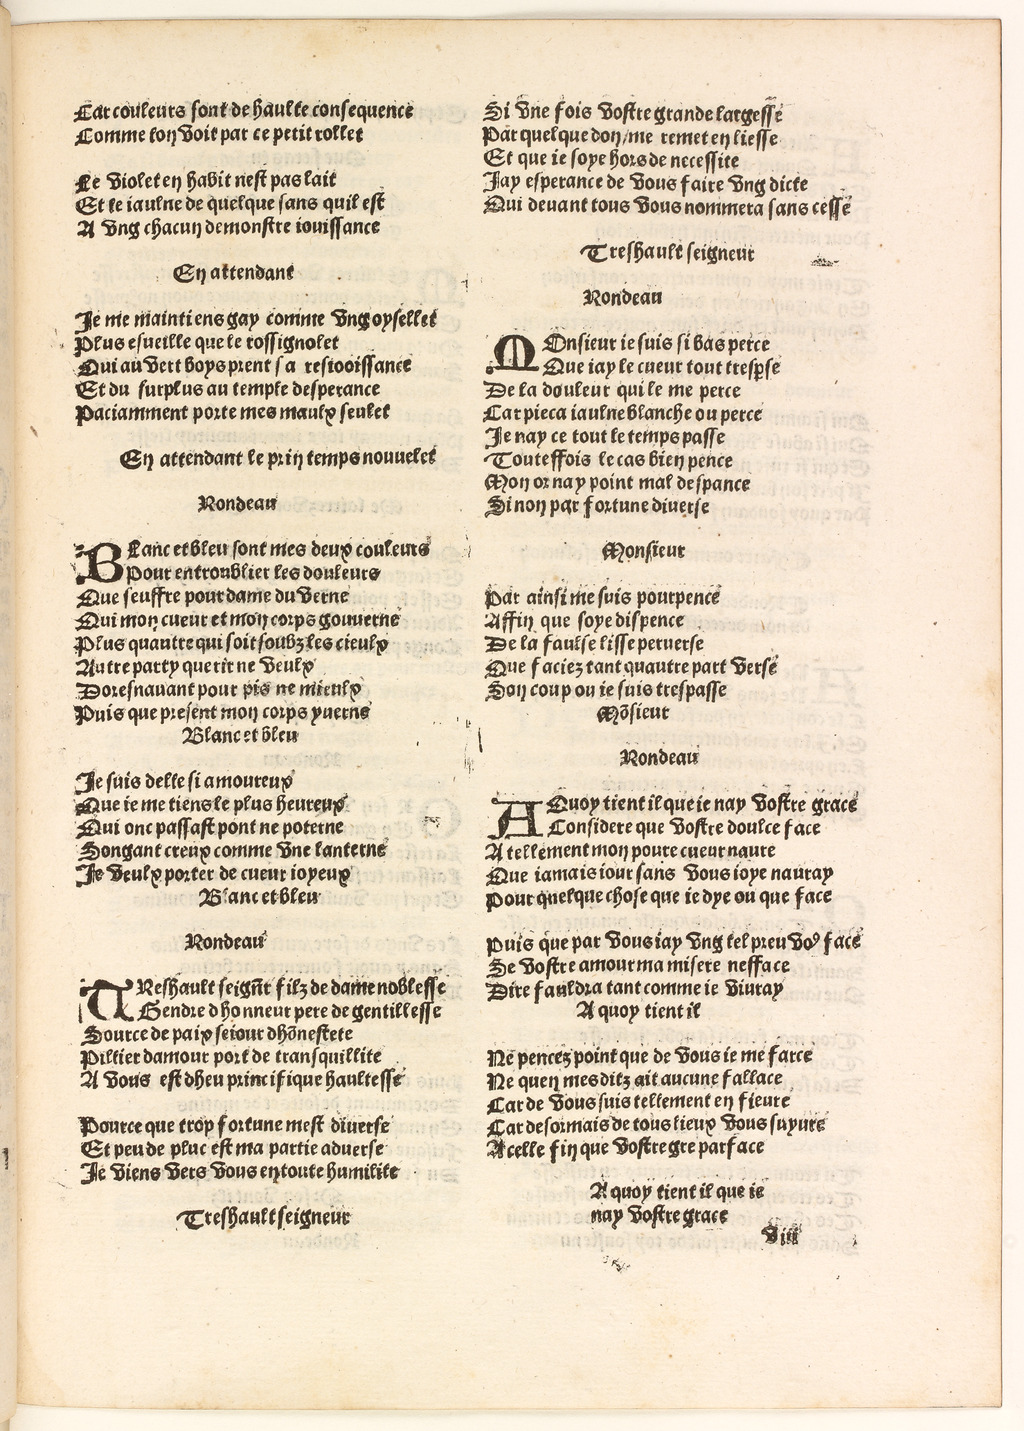 Car couleurs sont de haulte consequence
Comme lon voit par ce petit rollet
Le violet en habit nest pas lait
Et le iaulne de quelque sans quil est
A vng chacun demonstre iouissance
En attendant
Je me maintiens gay comme vng oysellet
Plus esueille que le rossignolet
Qui au vert boys prent sa resioissance
Et du surplus au temple desperance
Paciamment porte mes maulx seulet
En attendant le prin temps nouuelet
Rondeau
BLanc et bleu sont mes deux couleurs
Pour entroublier les douleurs
Que seuffre pour dame du verne
Qui mon cueur et mon corps gouuerne
Plus quautre qui soit soubz les cieulx
Autre party querir ne veulx
Doresnauant pour pis ne mieulx
Puis que present mon corps yuerne
Blanc et bleu
Je suis delle si amoureux
Que ie me tiens le plus heureux
Qui onc passast pont ne poterne
Songant creux comme vne lanterne
Je veulx porter de cueur ioyeux
Blanc et bleu
Rondeau
TReshault seignr̃ filz de dame noblesse
Gendre dhonneur pere de gentillesse
Source de paix seiour dhõnestete
Pillier damour port de transquillite
A vous est dheu principique haultesse
Pource que trop fortune mest diuerse
Et peu de pluc est ma partie aduerse
Je viens vers vous en toute humilite
Treshault seigneur
Si vne fois vostre grande largesse
Par quelque don/me remet en liesse
Et que ie soye hors de necessite
Jay esperance de vous faire vng dicte
Qui deuant tous vous nommera sans cesse
Treshault seigneur
Rondeau
MOnsieur ie suis si bas perce
Que iay le cueur tout trespse
De la douleur qui le me perce
Car pieca iaulne blanche ou perce
Je nay ce tout le temps passe
Touteffois le cas bien pence
Mon or nay point mal despance
Si non par fortune diuerse
Monsieur
Par ainsi me suis pourpence
Affin que soye dispence
De la faulse lisse peruerse
Que faciez tant quautre part verse
Son coup ou ie suis trespasse
Mõsieur
Rondeau
AQuoy tient il que ie nay vostre grace
Considere que vostre doulce face
A tellement mon poure cueur naure
Que iamais iour sans vous ioye nauray
Pour quelque chose que ie dye ou que face
Puis que par vous iay vng tel preu voꝰ face
Se vostre amour ma misere nefface
Dire fauldra tant comme ie viuray
A quoy tient il
Ne pencez point que de vous ie me farce
Ne quen mes ditz ait aucune fallace
Car de vous suis tellement en fieure
Car desormais de tous lieux vous suyure
A celle fin que vostre gre parface
A quoy tient il que ie
nay vostre grace
viii